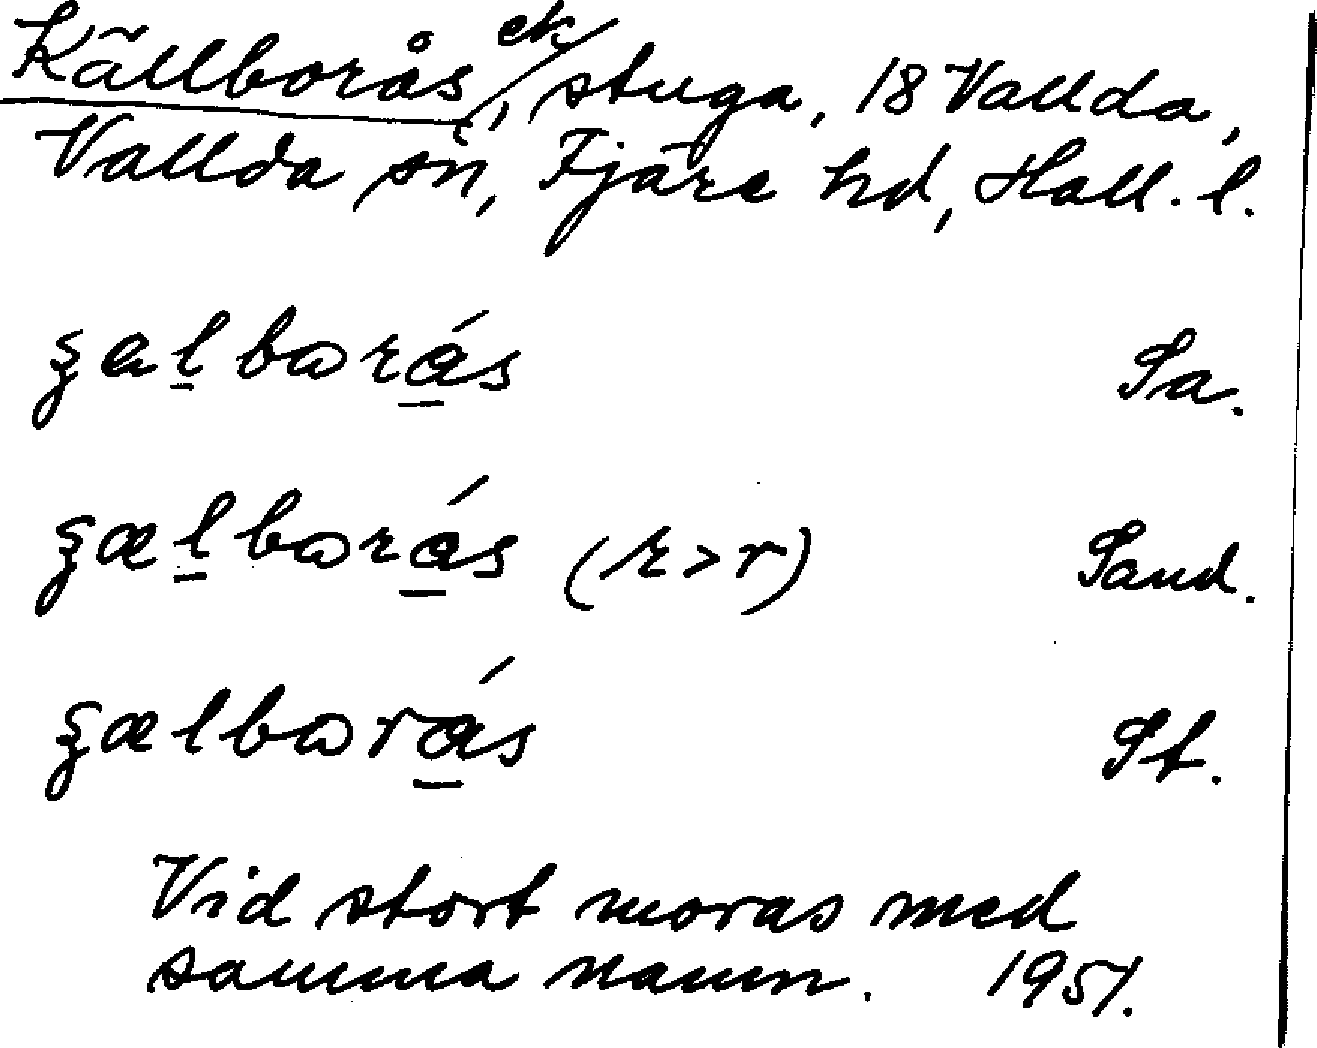 Källborås, ek/stuga, 18 Vallda,
Vallda sn, Fjäre hd, Hall. l.
ʒalbɷrás Sa.
ʒælbɷrás (r>r) Sand.
ʒælbɷrás St.
Vid stort moras med
samma namn. 1951.